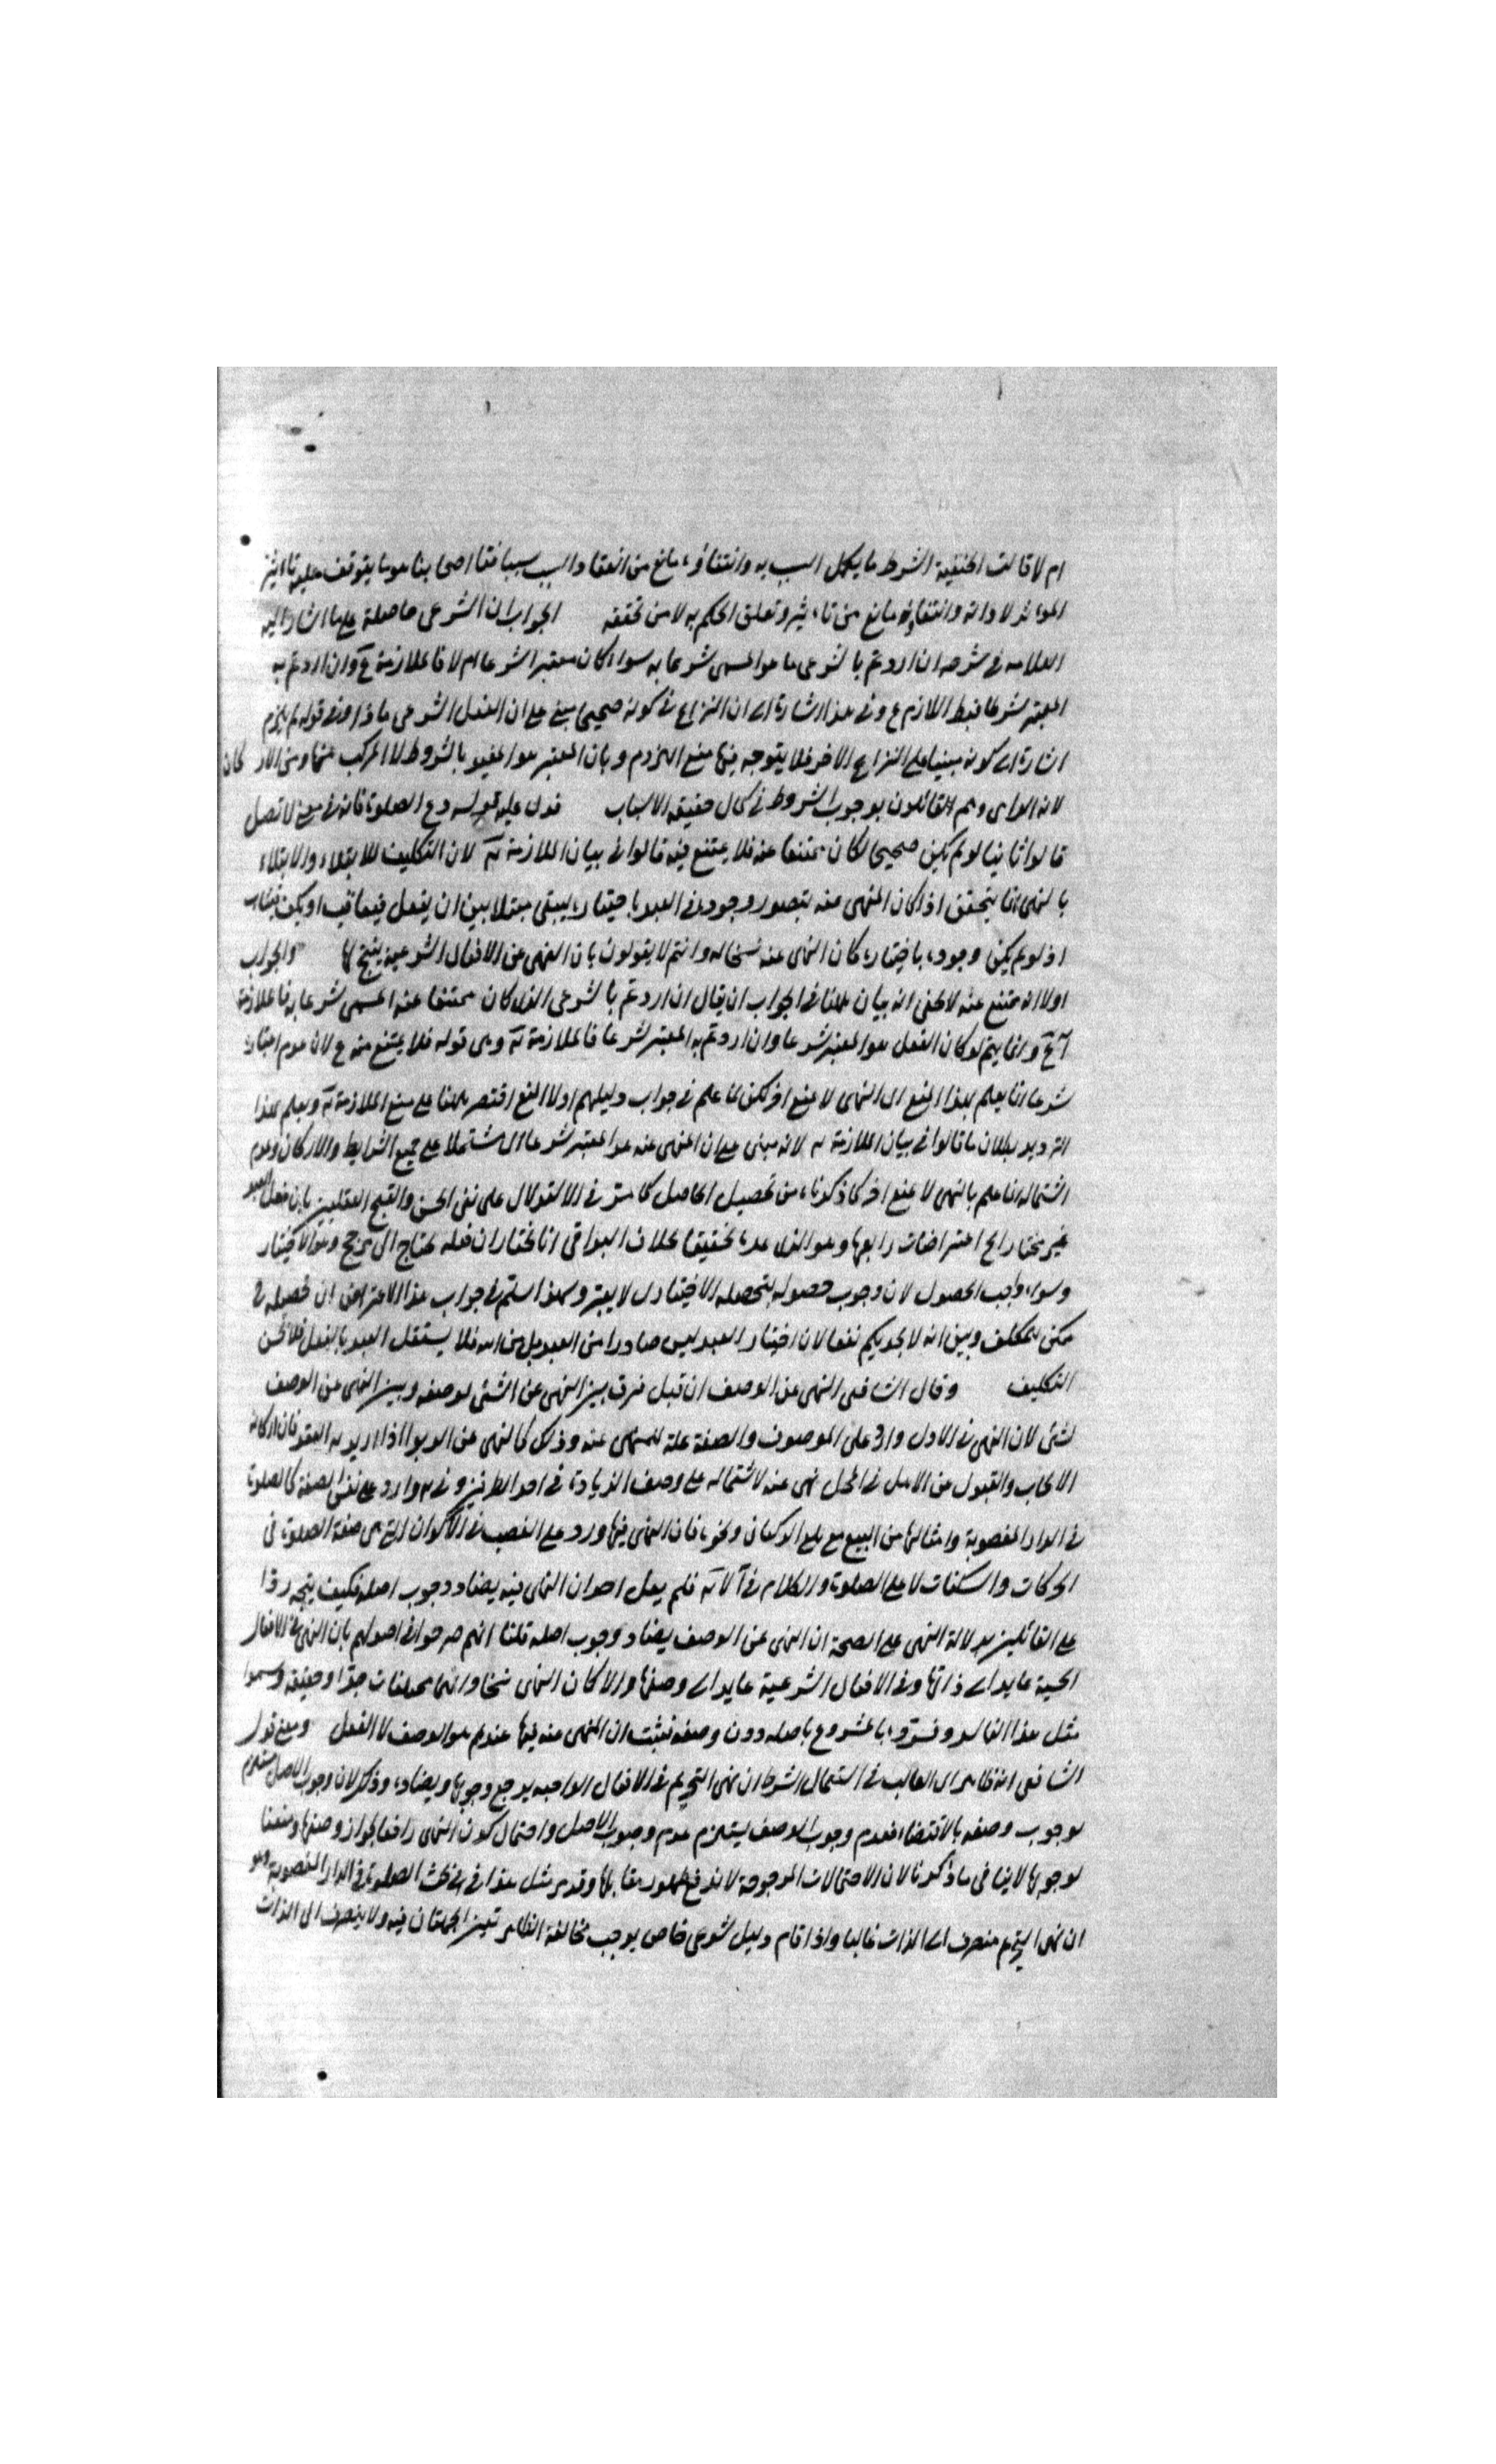 ام لا قالت الحنفية الشرط ما يكمل السبب به وانتفاؤه مانع من انعقاد السبب سببا فقال اصحابنا هو ما يتوقف عليه تاءثير
الموءثر لا ذاته وانتفاؤه مانع من تاءثير وتعلق الحكم به لا من تحققه الجواب ان الشرعى حاصله على ما اشار اليه
العلامه فى شرحه ان اردتم بالشرعى ما هو المسمى شرعا به سواء كان معتبرا شرعا ام لا فالملازمة مم وان اردتم به
المعتبر شرعا فبط اللازم مم وفى هذا اشارة الى ان النزاع فى كونه صحيحا مبنى على ان الفعل الشرعى ماذا وفى قوله ثم يلزم
اشارة الى كونه مبنيا على النزاع الاخر فلا يتوجه فيها منع اللزوم وبان المعتبر هو المقيد بالشروط لا المركب منها ومن الاركان
لانه الداى وهم القائلون بوجوب الشروط فى كمال حقيقه الاسباب فدل عليه قوله دع الصلوة فانه فى معنى لا تصل
قالوا ثانيا لو لم يكن صحيحا لكان ممتنعا عنه فلا يمتنع فيه قالوا فى بيان الملازمة لان التكليف للابتلاء والابتلاء
بالنهى انما يتحقق اذا كان المنهى عنه بتصور وجوده فى العبد باختياره ليبقى مبتلا بين ان يفعل فيعاقب او يكف فيثاب
اذ لو لم يكن وجوده باختياره كان النهى عنه نسخا له وانتم لا يقولون بان النهى عن الافعال الشرعيه ينتج لها والجواب
اولا انه ممتنع عنه لا يخفى انه بيان ههنا فى الجواب ان يقال ان اردتم بالشرعى الذى كان ممتنعا عنه المسمى شرعا به فالملازمة
وانما يتم لو كان الفعل هو المعتبر شرعا وان اردتم به المعتبر شرعا فالملازمة وهى قوله فلا يمتنع منه مم لان عدم اعتباره
شرعا انما يعلم بهذا المنع اى النهى لا بمنع اخر لكن لما علم فى جواب دليلهم اولا المنع اقتصر ههنا على منع الملازمة ويعلم بهذا
الترديد بطلان ما قالوا فى بيان الملازمة لانه مبنى على ان المنهى عنه هو المعتبر شرعا اى مشتملا على جميع الشرايط والاركان وعدم
اشتماله انما علم بالنهى لا بمنع اخر كما ذكرناه من تحصيل الحاصل كما مر فى الاستدلال على نفى الحسن والقبح العقليين بان فعل العبد
غير مختار الخ اعتراضات رابعها وهو الذى عده تحقيقا بخلاف البواقى انا نختار ان فعله يحتاج الى مرجح وهو الاختيار
وسواء واجب الحصول لان وجوب حصوله بتحصله الاختيار لا يعتبر وبهذا استتم فى جواب هذا الاعتراض ان تحصيله فى
ممكن للمكلف وبين انه لا يجديكم نفعا لان اختيار العبد ليس صادرا من العبد بل من الله فلا يستقل العبد بالفعل فلا يحسن
التكليف وقال الشافعى النهى عن الوصف ان قيل فرق بين النهى عن الشئ لوصفه وبين النهى عن الوصف
لشئ لان النهى فى الاول وارد على الموصوف والصفة علة للمنهى عنه وذلك كالنهى عن الربوا اذا اريد به العقد فان اركانه
الايجاب والقبول من الاهل فى المحل نهى عنه لاشتماله على وصف الزيادة فى احد الطرفين وفى وارد على نفس الصفة كالصلوة
فى الدار المغصوبة وامثالها من البيع مع بلع الاركان ونحوه فان النهى فيها ورد على الغصب فى الاكوان التى هى صفة الصلوة فى
الحركات والسكنات لا على الصلوة والكلام فى فلم يقل احد ان النهى فيه يضاد وجوب اصله فكيف يتجه ردا
على القائلين بدلالة النهى على الصحة ان النهى عن الوصف يضاد وجوب اصله قلنا انهم صرحوا فى اصولهم بان النهى فى الافعال
الحسية عايد الى ذاتها وفى الافعال الشرعية عايد الى وصفها والا كان النهى نسخا وانهما مختلفان حدا وحقيقه وسموا
مثل هذا الفاسد وفسروه بالمشروع باصله دون وصفه فثبت ان المنهى عنه فيها عندهم هو الوصف لا الفعل ومعنى قول
الشافعى انه ظاهر اى الغالب فى استعمال الشرط ان نهى التحريم فى الافعال الواجبه يرجع وجوبها ويضاده وذكر لان وجوب الاصل مستلزم
لوجوب وصفه بالاقتضاء فعدم وجوب الوصف يستلزم عدم وجوب الاصل واحتمال كون النهى رافعا لجواز وصفها ومنعنا
لوجوبها لا ينافى ما ذكرنا لان الاحتمالات المرجوحة لا تدفع ظهور مقابلها وقد مر مثل هذا فى بحث الصلوة فى الدار المغصوبة وهو
ان نهى التحريم منصرف الى الذات غالبا واذا قام دليل شرعى خاص يوجب مخالفة الظاهر تميز الجهتان فيه ولا ينصرف الى الذات